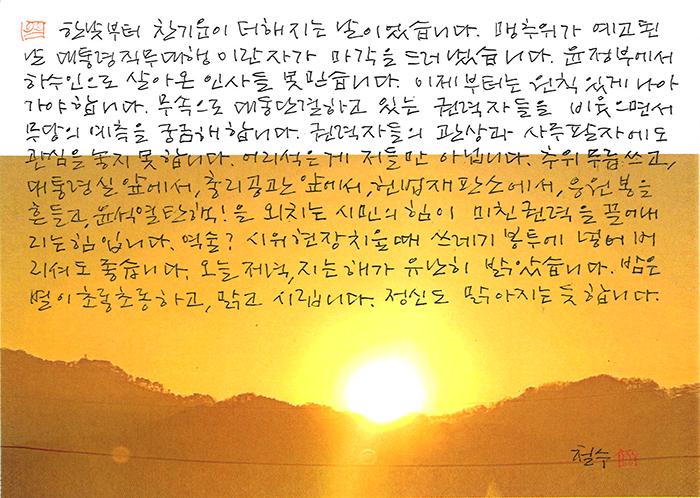 한낮부터 찬기운이 더해지는 날이었습니다. 맹추위가 예고된
날 대통령직무대행이란자가 마각을 드러냈습니다. 윤정부에서
하수인으로 살아온 인사들 못믿습니다. 이제부터는 원칙 있게 나아
가야합니다. 무속으로 대동단결하고 있는 권력자들을 비웃으면서
무당의 예측을 궁금해합니다. 권력자들의 관상과 사주팔자에도
관심을 놓지 못합니다. 어리석은게 저들만 아닙니다. 추위 무릅쓰고,
대통령실 앞에서, 총리공관 앞에서, 헌법재판소에서, 응원봉을
흔들고, 윤석열탄핵!을 외치는 시민의 힘이 미친권력을 끌어내
리는힘입니다. 역술? 시위현장치울때 쓰레기 봉투에 넣어버
리셔도 좋습니다. 오늘저녁, 지는해가 유난히 밝았습니다. 밤은
별이초롱초롱하고, 맑고 시립니다. 정신도 맑아지는듯합니다.
철수